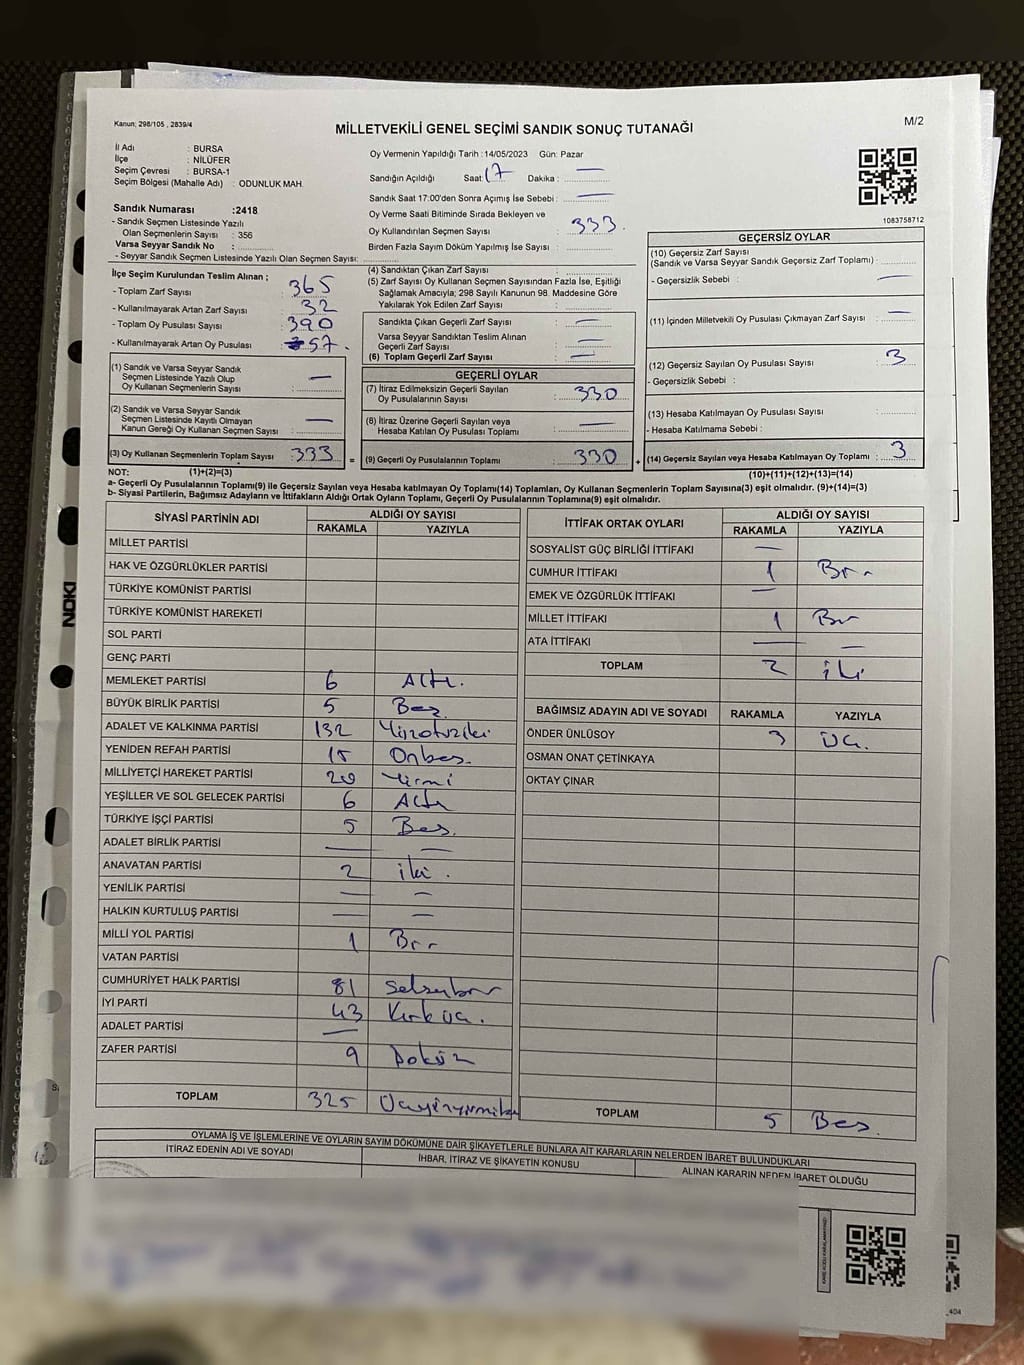 Kanun; 298/105 , 2839/4
MİLLETVEKİLİ GENEL SEÇİMİ SANDIK SONUÇ TUTANAĞI
M/2
İl Adı : BURSA
İlçe : NİLÜFER
Seçim Çevresi : BURSA-1
Seçim Bölgesi (Mahalle Adı) : ODUNLUK MAH.
Sandık Numarası :2418
- Sandık Seçmen Listesinde Yazılı
Olan Seçmenlerin Sayısı : 356
Varsa Seyyar Sandık No :
- Seyyar Sandık Seçmen Listesinde Yazılı Olan Seçmen Sayısı:
Oy Vermenin Yapıldığı Tarih :14/05/2023 Gün: Pazar
Sandığın Açıldığı Saat: 17 Dakika : —
Sandık Saat 17:00'den Sonra Açımış İse Sebebi : —
Oy Verme Saati Bitiminde Sırada Bekleyen ve
Oy Kullandırılan Seçmen Sayısı : 333
Birden Fazla Sayım Döküm Yapılmış İse Sayısı :
1083758712
İlçe Seçim Kurulundan Teslim Alınan ;
- Toplam Zarf Sayısı : 365
- Kullanılmayarak Artan Zarf Sayısı : 32
- Toplam Oy Pusulası Sayısı : 390
- Kullanılmayarak Artan Oy Pusulası : 57.
(1) Sandık ve Varsa Seyyar Sandık
Seçmen Listesinde Yazılı Olup
Oy Kullanan Seçmenlerin Sayısı : —
(2) Sandık ve Varsa Seyyar Sandık
Seçmen Listesinde Kayıtlı Olmayan
Kanun Gereği Oy Kullanan Seçmen Sayısı : —
(3) Oy Kullanan Seçmenlerin Toplam Sayısı : 333 =
(4) Sandıktan Çıkan Zarf Sayısı :
(5) Zarf Sayısı Oy Kullanan Seçmen Sayısından Fazla İse, Eşitliği
Sağlamak Amacıyla; 298 Sayılı Kanunun 98. Maddesine Göre
Yakılarak Yok Edilen Zarf Sayısı :
Sandıkta Çıkan Geçerli Zarf Sayısı : —
Varsa Seyyar Sandıktan Teslim Alınan
Geçerli Zarf Sayısı : —
(6) Toplam Geçerli Zarf Sayısı : —
GEÇERLİ OYLAR
(7) İtiraz Edilmeksizin Geçerli Sayılan
Oy Pusulalarının Sayısı : 330
(8) İtiraz Üzerine Geçerli Sayılan veya
Hesaba Katılan Oy Pusulası Toplamı : —
(9) Geçerli Oy Pusulalarının Toplamı : 330 +
GEÇERSİZ OYLAR
(10) Geçersiz Zarf Sayısı
(Sandık ve Varsa Seyyar Sandık Geçersiz Zarf Toplamı) :
- Geçersizlik Sebebi : —
(11) İçinden Milletvekili Oy Pusulası Çıkmayan Zarf Sayısı : —
(12) Geçersiz Sayılan Oy Pusulası Sayısı : 3
- Geçersizlik Sebebi :
(13) Hesaba Katılmayan Oy Pusulası Sayısı :
- Hesaba Katılmama Sebebi :
(14) Geçersiz Sayılan veya Hesaba Katılmayan Oy Toplamı : 3
NOT: (1)+(2)=(3) (10)+(11)+(12)+(13)=(14)
a- Geçerli Oy Pusulalarının Toplamı(9) ile Geçersiz Sayılan veya Hesaba katılmayan Oy Toplamı(14) Toplamları, Oy Kullanan Seçmenlerin Toplam Sayısına(3) eşit olmalıdır. (9)+(14)=(3)
b- Siyasi Partilerin, Bağımsız Adayların ve İttifakların Aldığı Ortak Oyların Toplamı, Geçerli Oy Pusulalarının Toplamına(9) eşit olmalıdır.
SİYASİ PARTİNİN ADI ALDIĞI OY SAYISI
RAKAMLA YAZIYLA
MİLLET PARTİSİ
HAK VE ÖZGÜRLÜKLER PARTİSİ
TÜRKİYE KOMÜNİST PARTİSİ
TÜRKİYE KOMÜNİST HAREKETİ
SOL PARTİ
GENÇ PARTİ
MEMLEKET PARTİSİ 6 Altı.
BÜYÜK BİRLİK PARTİSİ 5 Beş
ADALET VE KALKINMA PARTİSİ 132 Yüzotuziki
YENİDEN REFAH PARTİSİ 15 Onbeş.
MİLLİYETÇİ HAREKET PARTİSİ 20 Yirmi
YEŞİLLER VE SOL GELECEK PARTİSİ 6 Altı
TÜRKİYE İŞÇİ PARTİSİ 5 Beş.
ADALET BİRLİK PARTİSİ — —
ANAVATAN PARTİSİ 2 iki .
YENİLİK PARTİSİ — —
HALKIN KURTULUŞ PARTİSİ — —
MİLLİ YOL PARTİSİ 1 Bir
VATAN PARTİSİ
CUMHURİYET HALK PARTİSİ 81 Seksenbir
İYİ PARTİ 43 Kırküç.
ADALET PARTİSİ —
ZAFER PARTİSİ 9 Dokuz
TOPLAM 325 Üçyüzyirmibeş
İTTİFAK ORTAK OYLARI ALDIĞI OY SAYISI
RAKAMLA YAZIYLA
SOSYALİST GÜÇ BİRLİĞİ İTTİFAKI —
CUMHUR İTTİFAKI 1 Bir
EMEK VE ÖZGÜRLÜK İTTİFAKI —
MİLLET İTTİFAKI 1 Bir
ATA İTTİFAKI — —
TOPLAM 2 iki
BAĞIMSIZ ADAYIN ADI VE SOYADI RAKAMLA YAZIYLA
ÖNDER ÜNLÜSOY 3 Üç.
OSMAN ONAT ÇETİNKAYA
OKTAY ÇINAR
TOPLAM 5 Beş.
OYLAMA İŞ VE İŞLEMLERİNE VE OYLARIN SAYIM DÖKÜMÜNE DAİR ŞİKAYETLERLE BUNLARA AİT KARARLARIN NELERDEN İBARET BULUNDUKLARI
İTİRAZ EDENİN ADI VE SOYADI İHBAR, İTİRAZ VE ŞİKAYETİN KONUSU ALINAN KARARIN NEDEN İBARET OLDUĞU
NOKI
_404